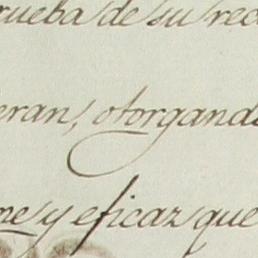 rueba de su rec
eran, otorgando
me y eficaz que